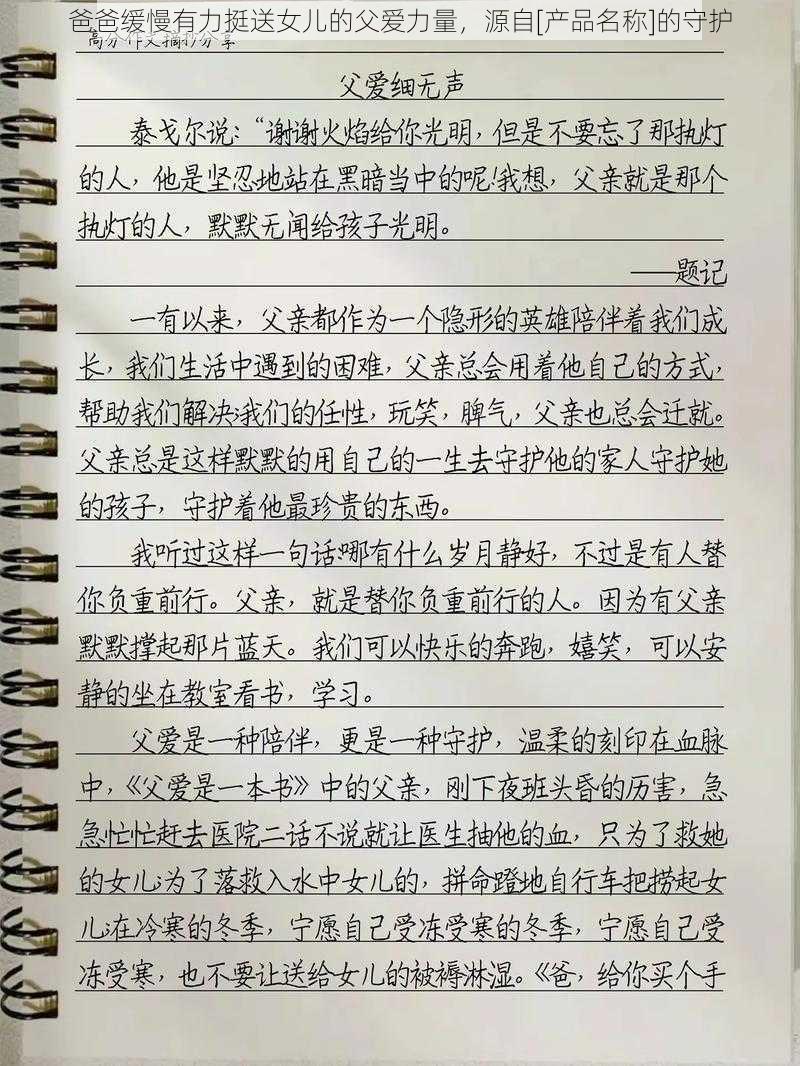 爸爸缓慢有力挺送女儿的父爱力量，源自[产品名称]的守护
高分作文摘抄分享
父爱细无声
泰戈尔说：“谢谢火焰给你光明，但是不要忘了那执灯
的人，他是坚忍地站在黑暗当中的呢!我想，父亲就是那个
执灯的人，默默无闻给孩子光明。
——题记
一有以来，父亲都作为一个隐形的英雄陪伴着我们成
长，我们生活中遇到的困难，父亲总会用着他自己的方式，
帮助我们解决;我们的任性，玩笑，脾气，父亲也总会迁就。
父亲总是这样默默的用自己的一生去守护他的家人守护她
的孩子，守护着他最珍贵的东西。
我听过这样一句话:哪有什么岁月静好，不过是有人替
你负重前行。父亲，就是替你负重前行的人。因为有父亲
默默撑起那片蓝天。我们可以快乐的奔跑，嬉笑，可以安
静的坐在教室看书，学习。
父爱是一种陪伴，更是一种守护，温柔的刻印在血脉
中，《父爱是一本书》中的父亲，刚下夜班头昏的厉害，急
急忙忙赶去医院二话不说就让医生抽他的血，只为了救她
的女儿;为了落救入水中女儿的，拼命蹬地自行车把捞起女
儿;在冷寒的冬季，宁愿自己受冻受寒的冬季，宁愿自己受
冻受寒，也不要让送给女儿的被褥淋湿。《爸，给你买个手